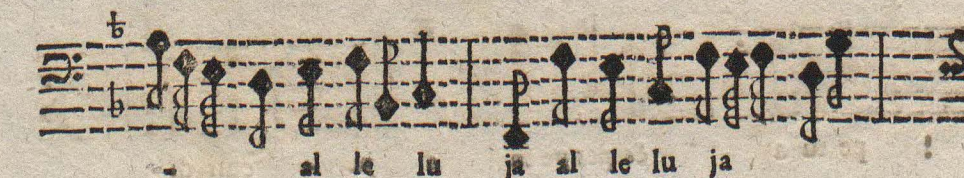 - al le lu ja al le lu ja